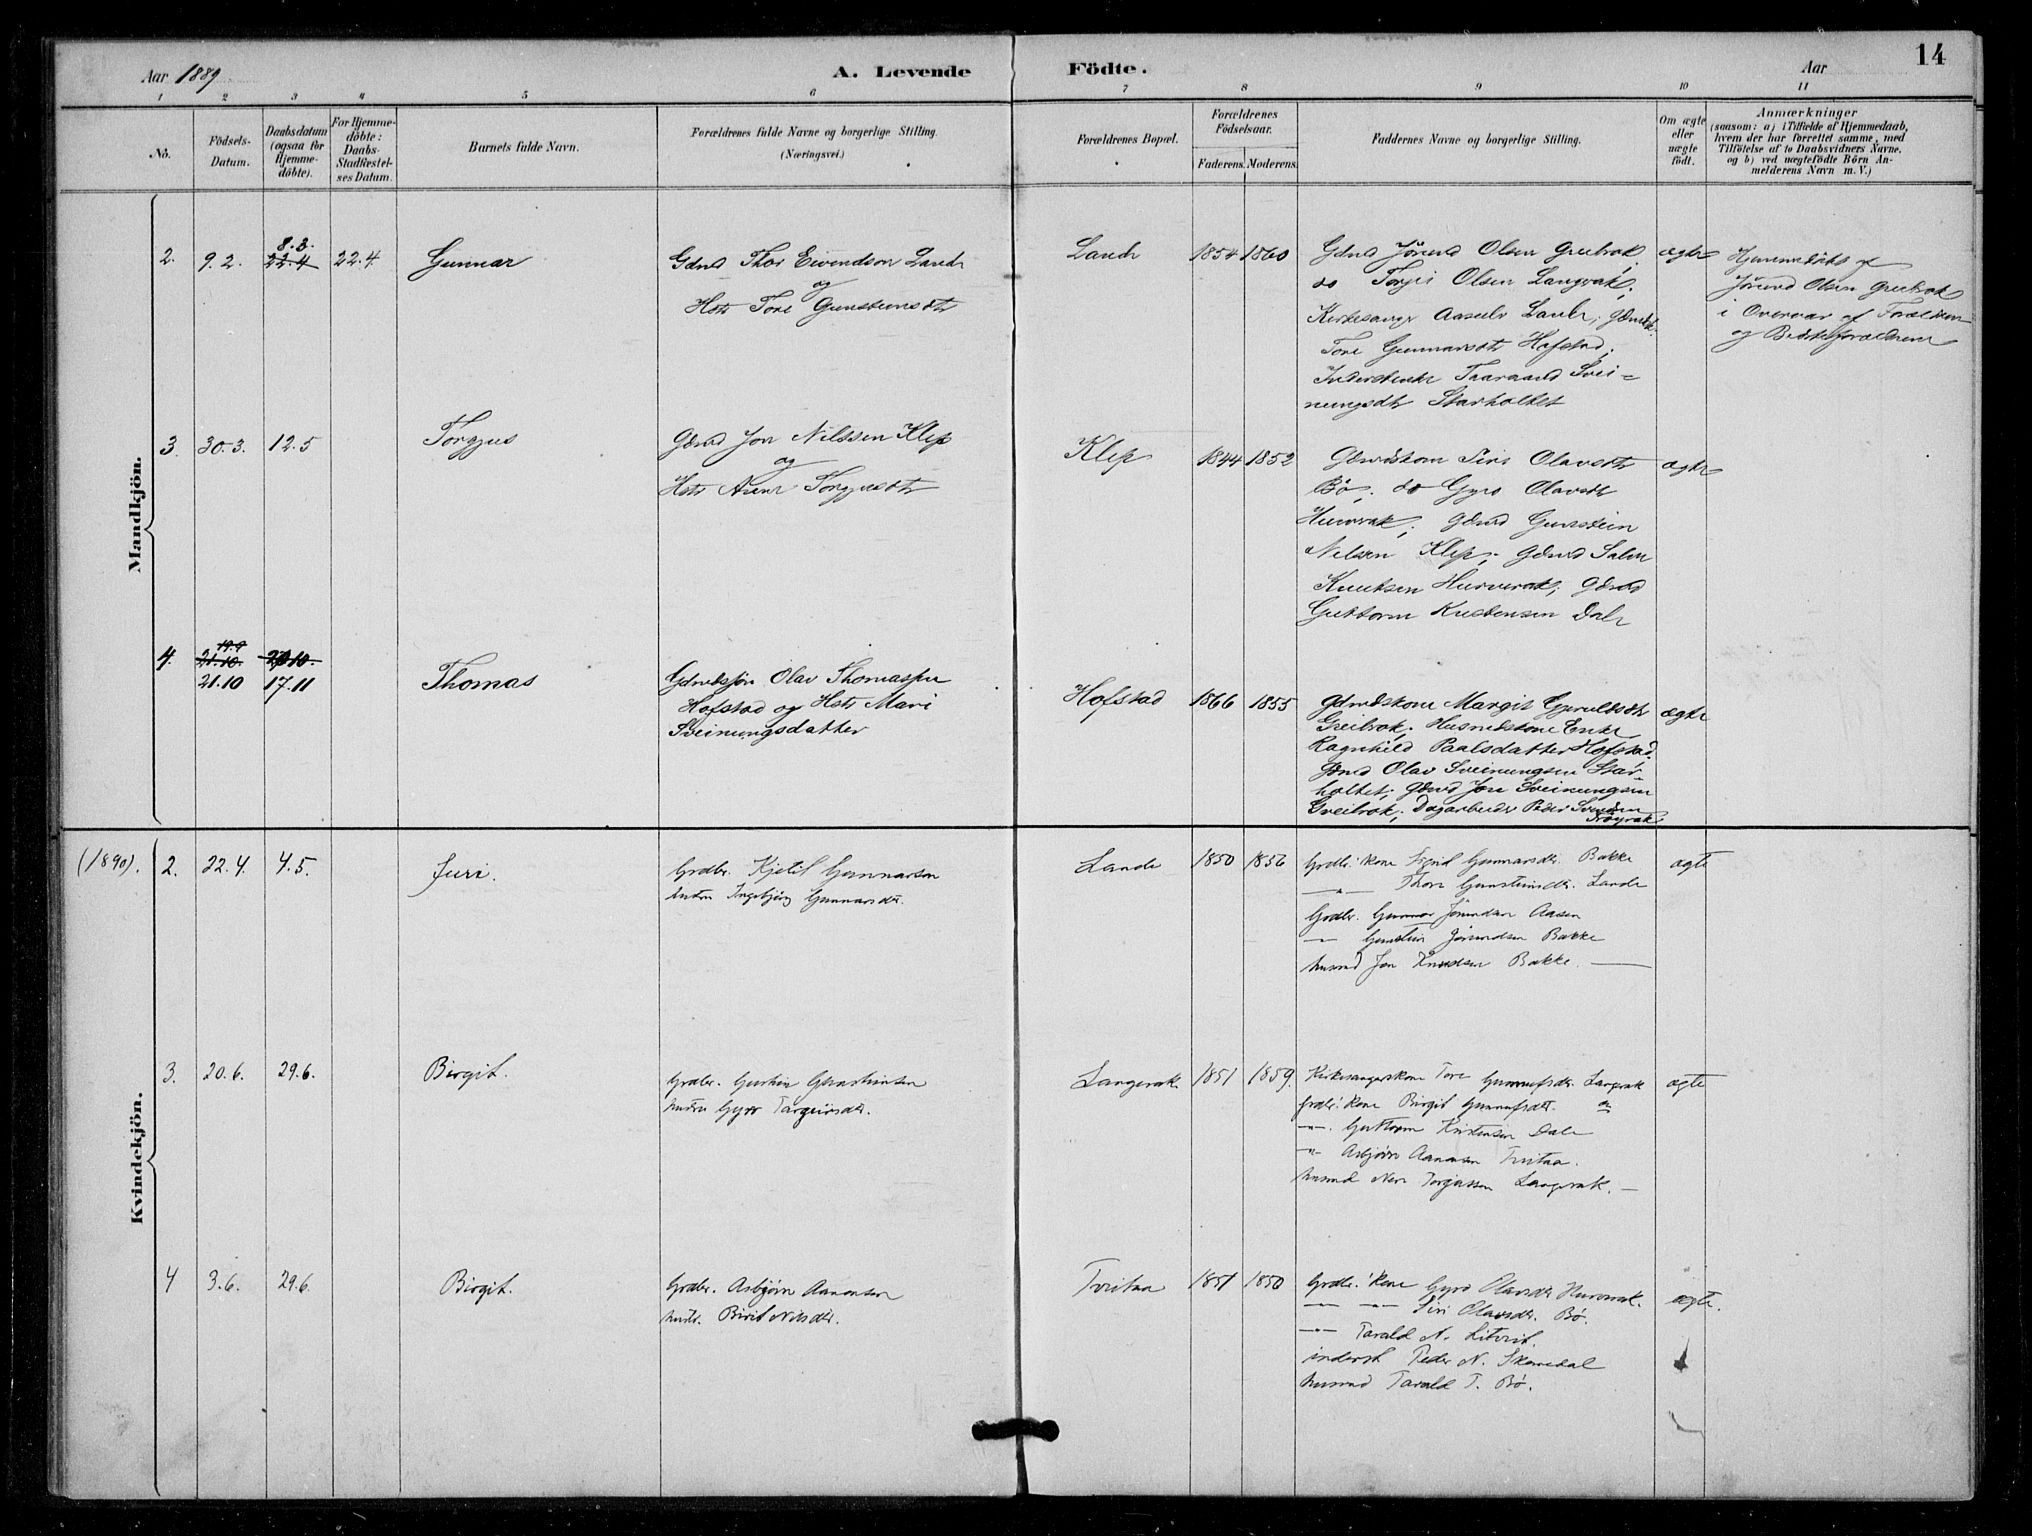 14
Aar 1889
A. Levende
Födte.
Aar
1 2 3 4 5 6 7 8 9 10 11
No.
Födsels-
Datum.
Daabsdatum
(ogsaa for
Hjemme-
döbte).
For Hjemme-
döbte:
Daabs-
Stadfæstel-
ses Datum.
Barnets fulde Navn.
Forældrenes fulde Navne og borgerlige Stilling.
(Næringsvei.)
Forældrenes Bopæl.
Forældrenes
Födselsaar.
Faderens. Moderens.
Faddernes Navne og borgerlige Stilling.
Om ægte
eller
uægte
födt.
Anmærkninger
(saasom: a) i Tilfælde af Hjemmedaab,
hvem der har forrettet samme, med
Tilföielse af to Daabsvidners Navne,
og b) ved uægtefödte Börn An-
melderens Navn m. V.)
Mandkjön.
2. 9.2. 8.3. 22.4 22.4 Gunnar
Gdmd Thor Eivendson Lande
og
Hstr Tone Gunsteinsdtr
Lande 1854 1860
Gdmd Jörund Olsen Greibrok
do Torjei Olsen Langrak;
Kirkesanger Aasulv Lande; Gdmdsk.
Tone Gunnarsdtr Hofstad;
Inderstenke Taaraand Svei-
nungsdtr Starholtet
ægte
Hjemmedöbt af
Jörund Olsen Greibrok
i Overvær af Forældrene
og Bedsteforældrene
3. 30.3. 12.5 Torgjus
Gdmd Jon Nilssen Klep
og
Hstr Anne Torgjusdtr
Klep 1844 1852
Gdmdskone Siri Olavsdtr
Bö; do Gyro Olavsdtr
Hurverak; Gdmd Gunstein
Nilsen Klep; Gdmd Salve
Knutsen Hurverak; Gdmd
Guttorm Kristensen Dale
ægte
4. 19.9 21.10. 20 10.
21.10 17.11 Thomas
Gdmdssön Olav Thomassen
Hofstad og Hstr Mari
Sveinungsdatter
Hofstad 1866 1855
Gdmdskone Margit Gjeruldsdtr
Greibrok; Husmdskone Enke
Ragnhild Paalsdatter Hofstad;
Gdmd Olav Sveinungsen Star-
holtet; Gdmd Jon Sveinungsen
Greibrok; Dagarbeider Peder Svendsen
Tröyrak
ægte
Kvindekjön.
(1890). 2. 22.4. 4.5. Juri.
Grdbr. Kjetil Gunnarson
hustru Ingebjörg Gunnarsdtr.
Lande 1850 1856
Grdbr.'kone Sigrid Gunnarsdtr. Bakke
—"— Thone Gunsteinsdtr. Lande
Grdbr. Gunnar Jörundsen Aasen
—"— Gunstein Jörundsen Bakke
husmd Jon Knudsen Bakke.
ægte
3. 20.6. 29.6. Birgit.
Grdbr. Gunstein Gunsteinsen
hustru Gyro Targeirsdtr.
Langerak 1851 1859.
Kirkesangerskone Tone Gunnufsdtr. Langerak
grdbr.'kone Birgit Gunnufsdtr. do
—"—. Guttorm Kristensen Dale
—"— Asbjörn Aanonsen Tveitaa.
husmd Nere Torjussen Langerak.
ægte
4 3.6. 29.6. Birgit.
Grdbr. Asbjörn Aanonsen
hustr. Birit Nilsdtr.
Tveitaa 1851 1850
Grdbr.'kone Gyro Olavsdtr Hurverak.
—"— —"— Siri Olavsdtr. Bö.
—"— Tarald N. Litveit
inderst Peder N. Skomedal
husmd Tarald T. Bö.
ægte.